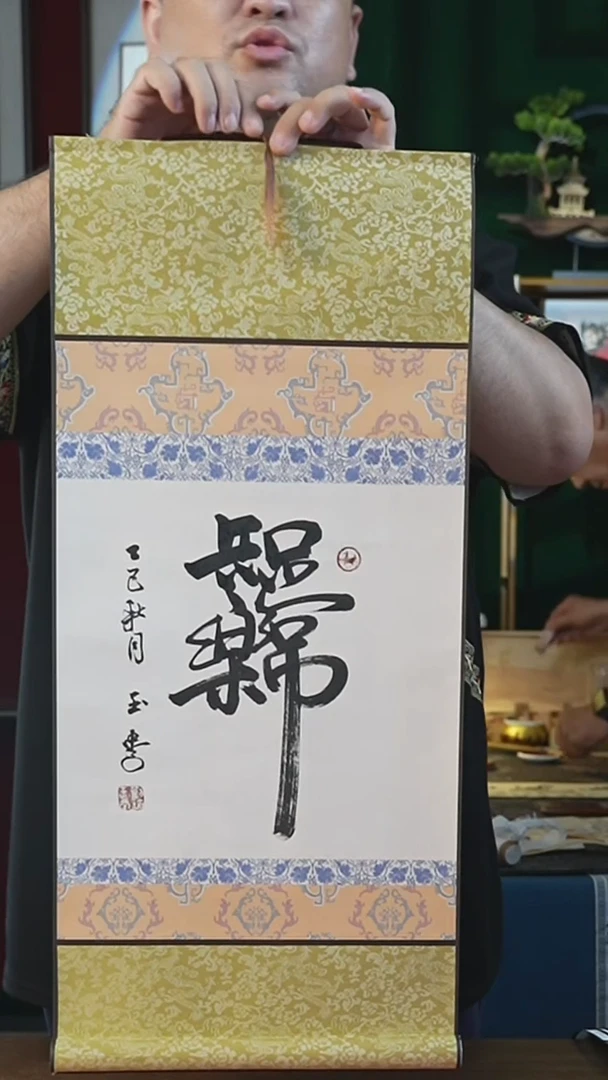 知足常樂
乙巳秋月 玉